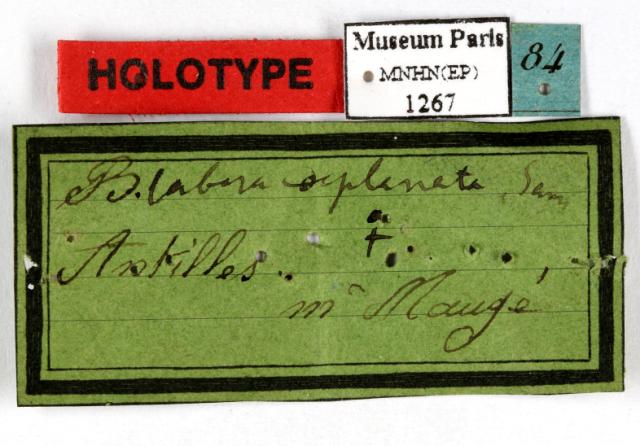 HOLOTYPE
Museum Paris
MNHN(EP)
1267
84
Blabera complanata, Sauss
Antilles.
mr Maugé